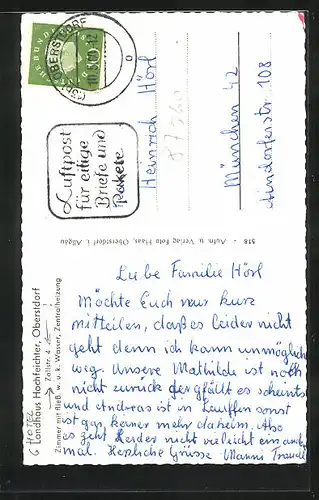 (13b) OBERSTDORF
Luftpost
für eilige
Briefe und
Pakete
Heinrich Hösl
München 42
Aindorferstr 108
518 - Aufn. u. Verlag Foto Haas, Oberstdorf i. Allgäu
HOTEL
Landhaus Hochfeichter, Oberstdorf
Zollstr. 4
Zimmer mit fließ. w. u. k. Wasser, Zentralheizung
Liebe Familie Hösl
Möchte Euch nur kurz
mitteilen, daß es leider nicht
geht denn ich kann unmöglich
weg. Unsere Mathilde ist noch
nicht zurück der gfällt es scheints
und Andreas ist in Lauffen sonst
ist gar keiner mehr daheim. Also
es geht leider nicht vielleicht ein ander
mal. Herzliche Grüsse Manni Traudl